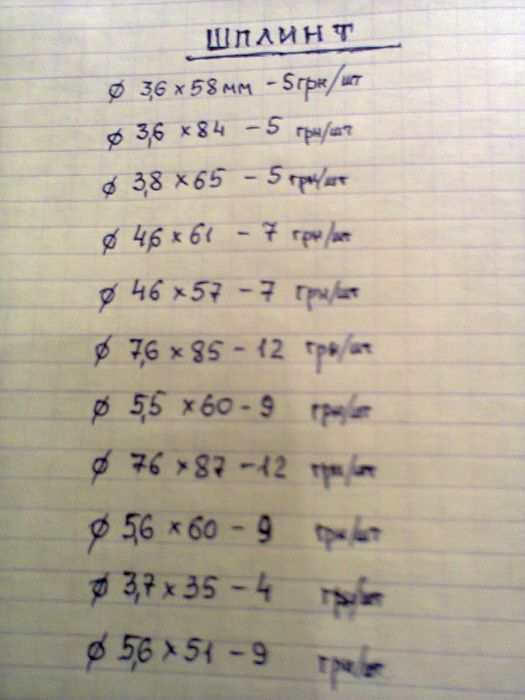 ШПЛИНТ
ø 3,6 × 58 мм - 5 грн/шт
ø 3,6 × 84 - 5 грн/шт
ø 3,8 × 65 - 5 грн/шт
ø 4,6 × 61 - 7 грн/шт
ø 4,6 × 57 - 7 грн/шт
ø 7,6 × 85 - 12 грн/шт
ø 5,5 × 60 - 9 грн/шт
ø 7,6 × 87 - 12 грн/шт
ø 5,6 × 60 - 9 грн/шт
ø 3,7 × 35 - 4 грн/шт
ø 5,6 × 51 - 9 грн/шт